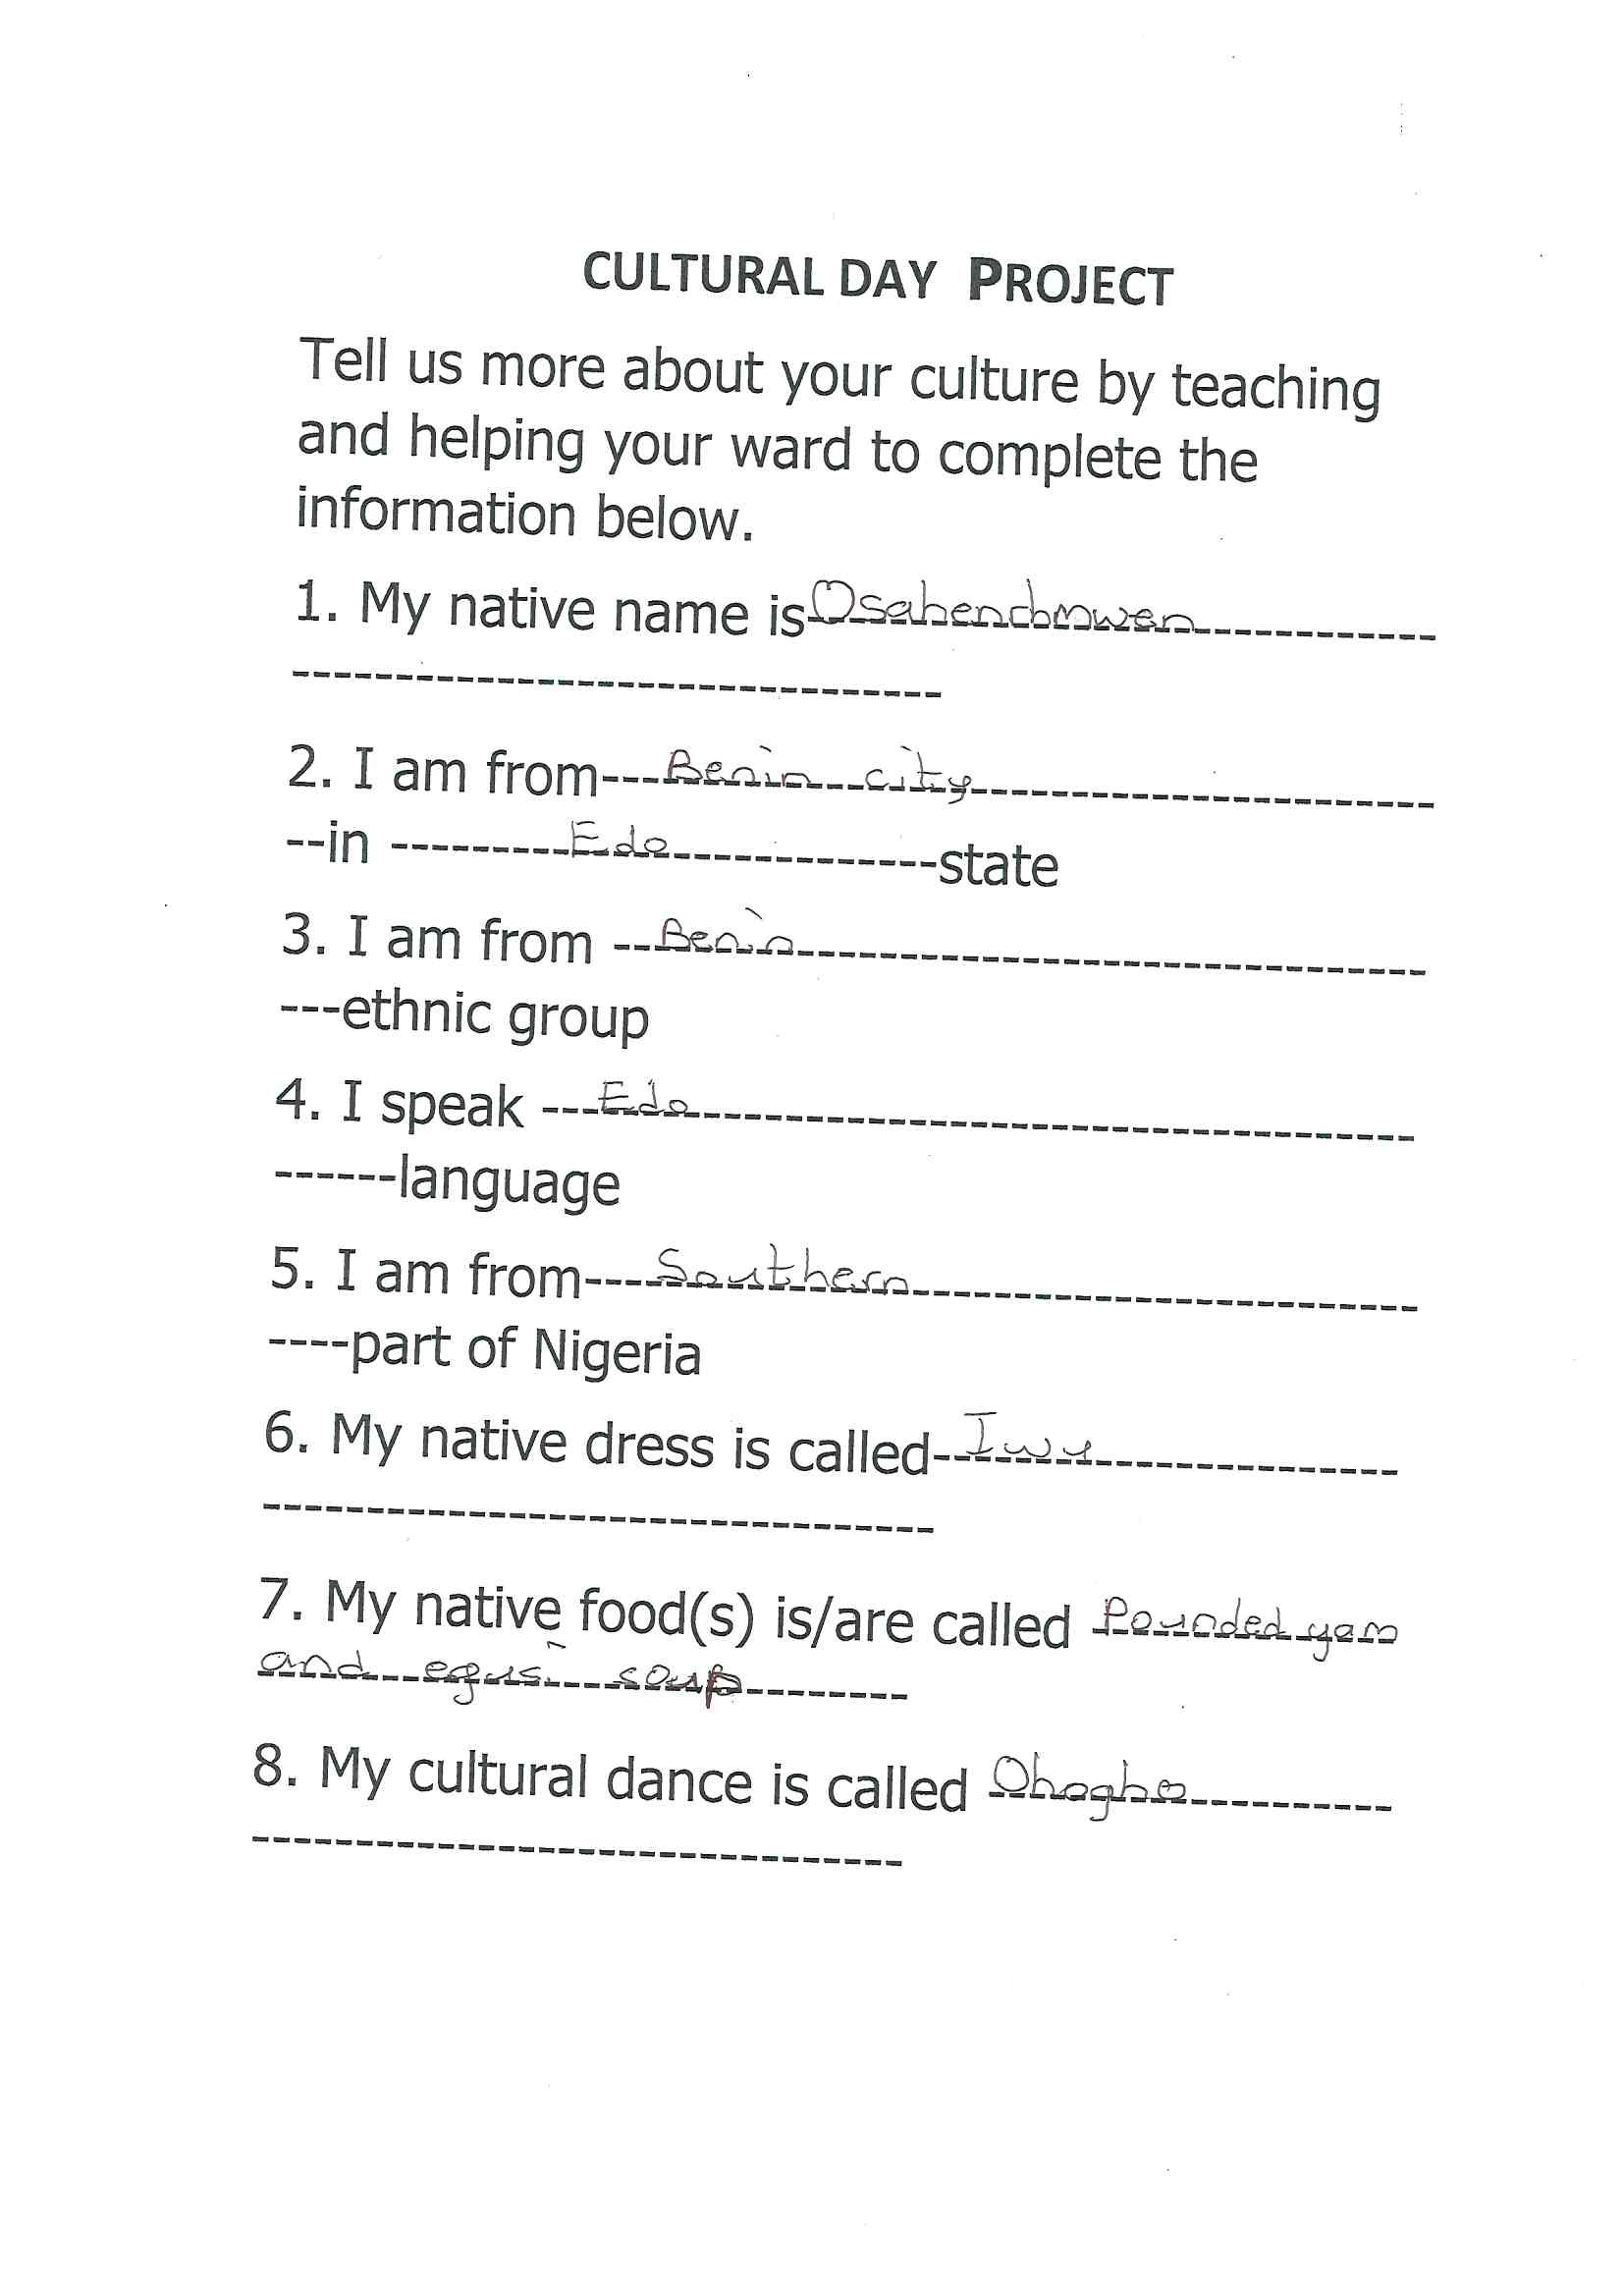 CULTURAL DAY PROJECT
Tell us more about your culture by teaching
and helping your ward to complete the
information below.
1. My native name is
--------------------------------
2. I am from---Benin city-----------------------
--in ---------Edo-------------state
3. I am from --Benin-------------------------------
---ethnic group
4. I speak ---Edo-----------------------------------
------language
5. I am from----Southern-------------------------
----part of Nigeria
6. My native dress is called-Iwu---------------
---------------------------------
7. My native food(s) is/are called Pounded yam
and egusi soup--------
8. My cultural dance is called Ohogho----------
--------------------------------